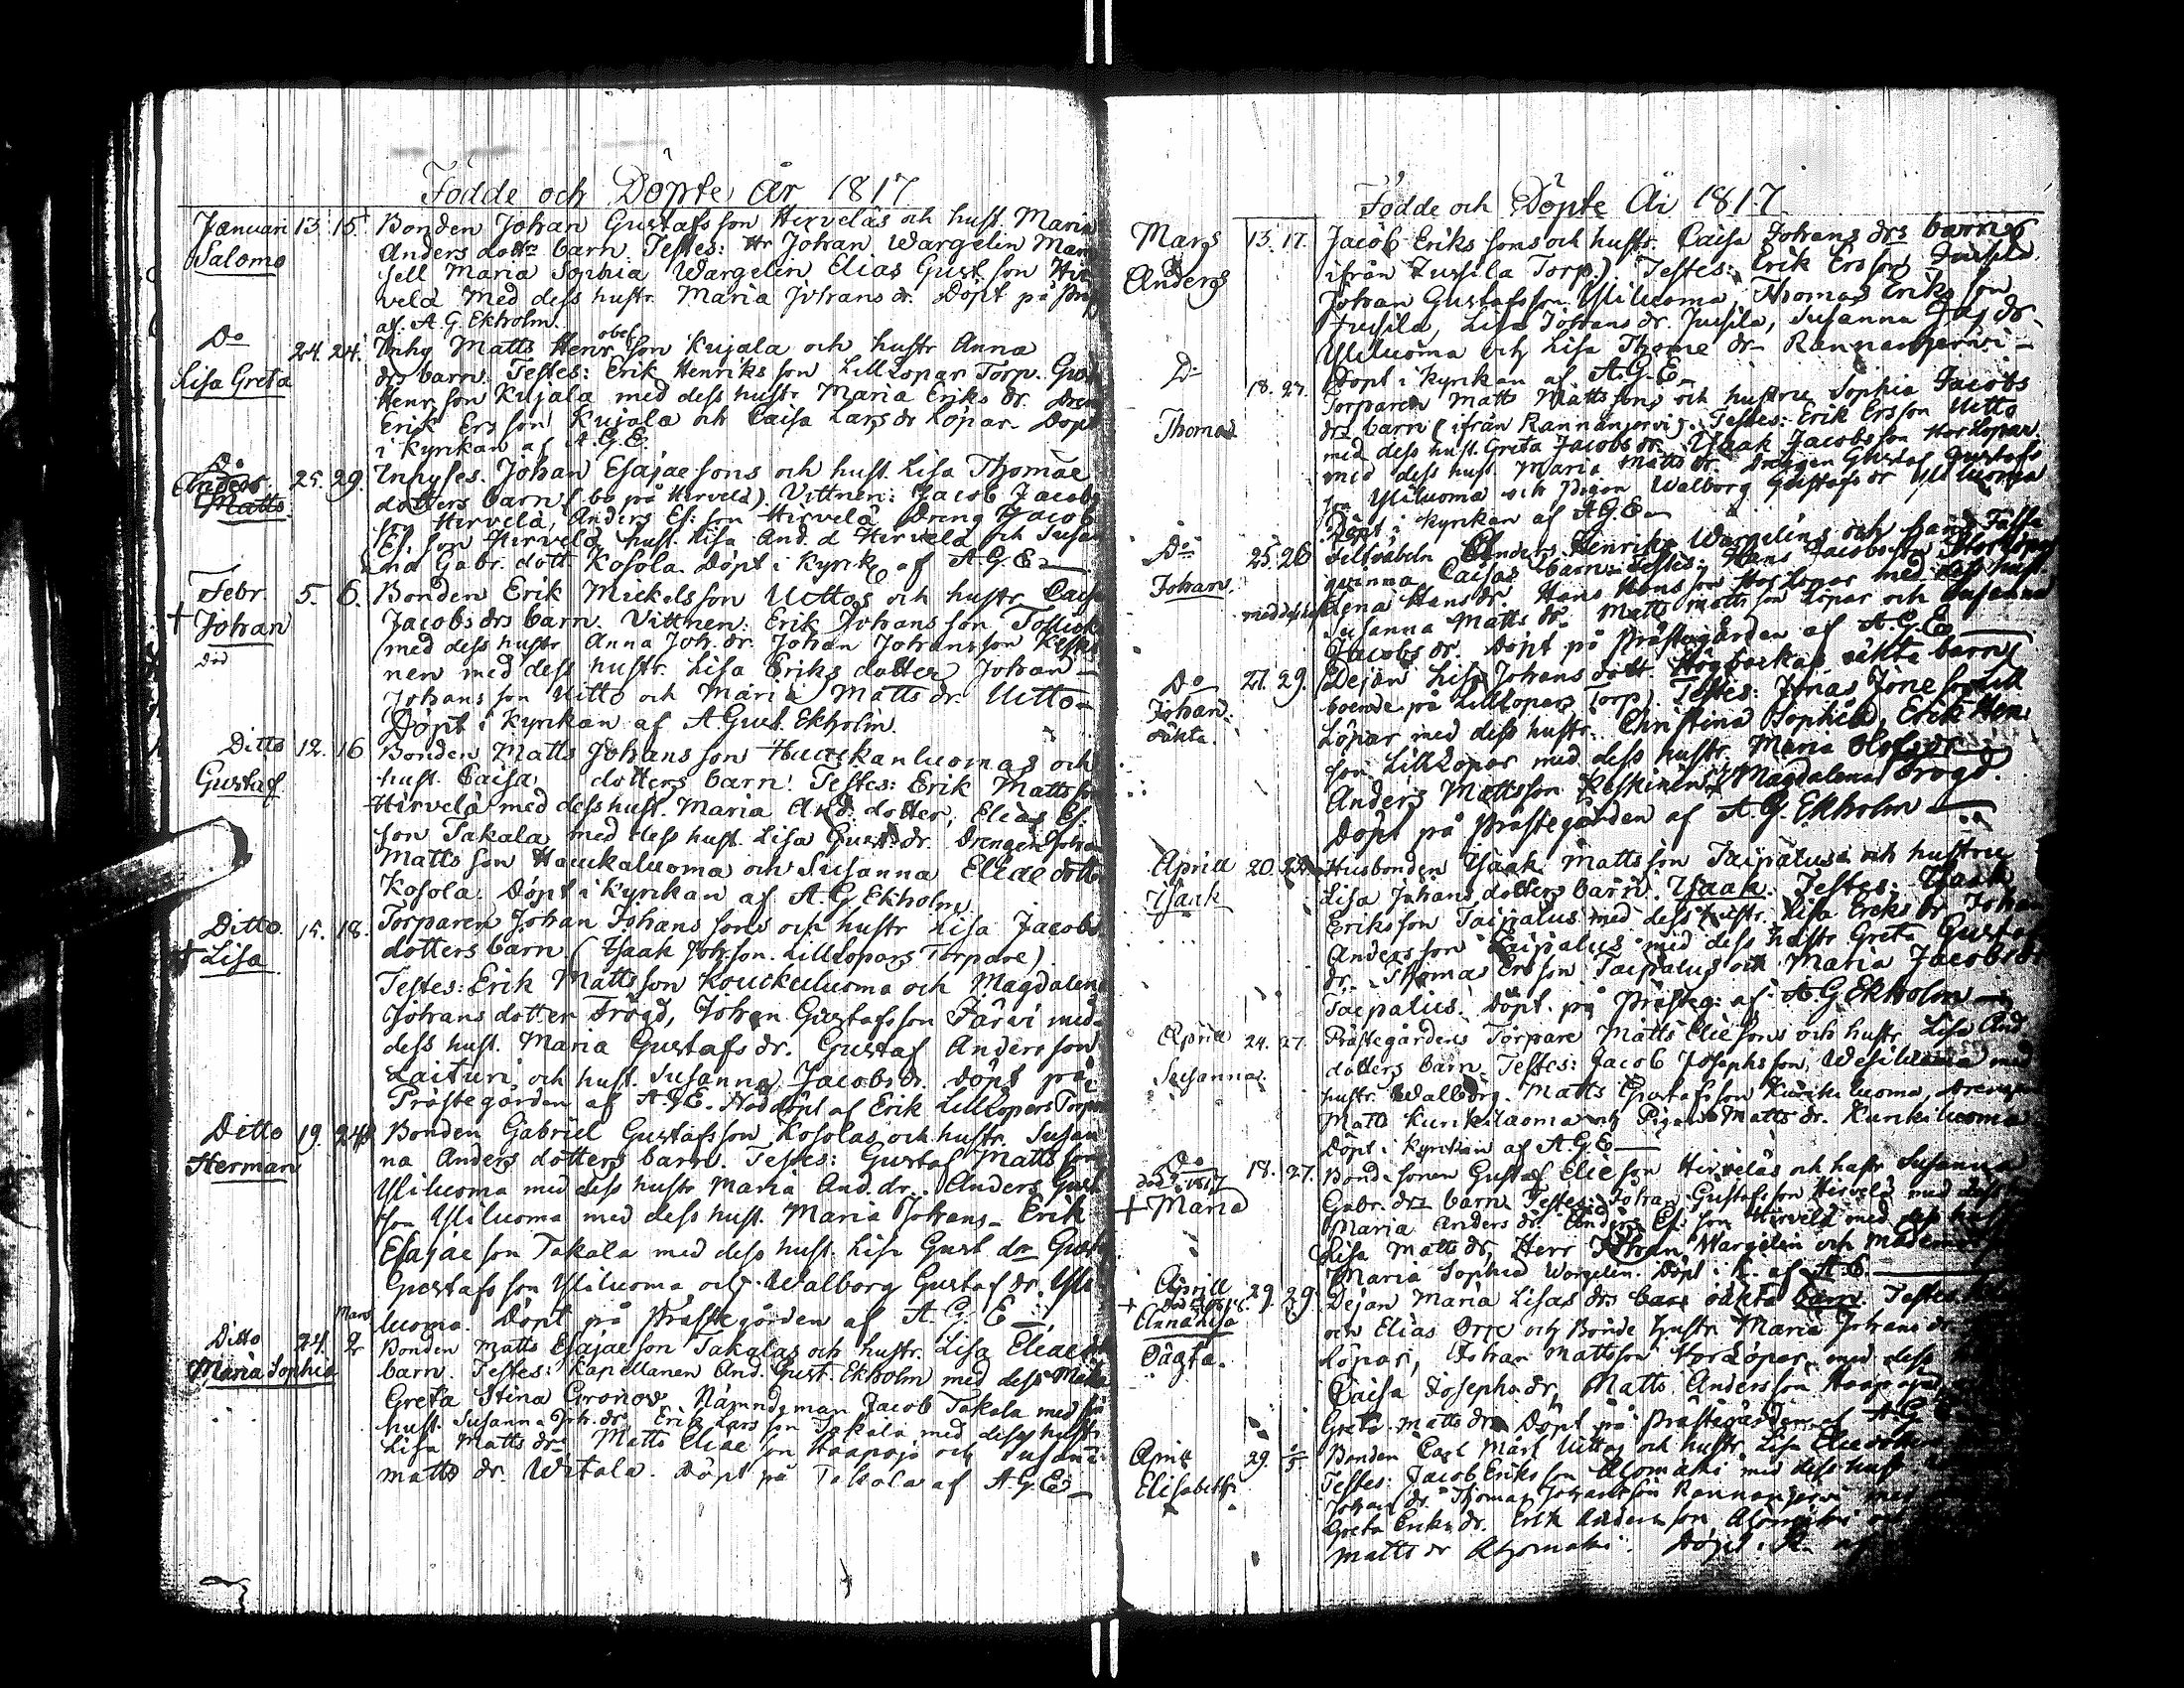 Födde och Döpte År 1817
Januari 13. 15. Bonden Johan Gustafsson Hirveläs och hust. Maria
Salomo Anders dottrs barn. Testes: Hr Johan Wargelin Mam
sell Maria Sophia Wargelin Elias Gust. son Hir
velä med dess hustr. Maria Johans dr. Döpt på
af. A. G. Ekholm.
Do 24. 24. Inhy Matts Henr. son Kujala och hustr Anna
Lisa Greta drs barn. Testes: Erik Henriks son Lill Lopar Torp.
Henr. son Kujala med dess hustr Maria Eriks dr.
Erik Ers son Kujala och Caisa Lars dr Löpar. Döpt
i kyrkan af A. G. E.
Do 25. 29. Inhyses. Johan Esajae sons och hust. Lisa Thomæ
Matts dotters barn (bo på Hirvelä). Vittnen: Jacob Jacobs
son Hirvelä, Anders Es: son Hirvelä Dreng Jacob
Es. son Hirvelä hust. Lisa And. d Hirvelä och Susan
na Gabr. dott. Kosola. Döpt i kyrk. af A. G. E.
Febr. 5. 6. Bonden Erik Mickelsson Uittos och hustr Caisa
+ Johan Jacobs drs barn. Vittnen: Erik Johans son
död med dess hustr. Anna Joh. dr. Johan Johansson
nen med dess hustr. Lisa Eriks dotter Johan
Johans son Uitto och Maria Matts dr. Uitto
Döpt i kyrkan af A Gust. Ekholm.
Ditto 12. 16 Bonden Matts Johans son Hauckanluomas och
Gustaf hust. Caisa dotters barn. Testes: Erik Matts son
Hirvelä med dess hust. Maria And. dotter, Elias Es.
son Takala med dess hust. Lisa Gust. dr. Drengen Johan
Matts son Hauckaluoma och Susanna Eliae dotter
Kosola. Döpt i kyrkan af A. G. Ekholm
Ditto 15. 18. Torparen Johan Johans sons och hustr Lisa Jacobs
+ Lisa dotters barn (Isaak Joh. son. Lill Lopars Torpare).
Testes: Erik Matts son Kouckuluoma och Magdalena
Johans dotter Frögd, Johan Gustafs son Järvi med
dess hust. Maria Gustafs dr. Gustaf Anders son
Laituri och hust. Susanna Jacobs dr. Döpt på
Prästegården af A. G. E. Nöddöpt af Erik Lill Lopars Torp
Ditto 19. 24 Bonden Gabriel Gustafsson Kosolas och hustr. Susan
Herman na Anders dotters barn. Testes: Gustaf Matts son
Yliluoma med dess hustr Maria And. dr. Anders Gust
son Yliluoma med dess hust. Maria Johans. Erik
Esajae son Takala med dess hust. Lisa Gust dr Gustaf
Gustafs son Yliluoma och Walborg Gustaf dr. Yli
luoma. Döpt på Prästegården af A. G. E
Mars
Ditto 24. 2 Bonden Matts Esajae son Takalas och hustr. Lisa Eliae dr
Maria Sophia barn. Testes: Kapellanen And. Gust. Ekholm med dess
Greta Stina Gronow. Nämndeman Jacob Takala med
hust. Susanna Joh. dr, Erik Lars son Takala med dess hustr.
Lisa Matts dr. Matts Eliae son Haapoja och Susanna
Matts dr. Witala. Döpt på Takala af A. G. E
Födde och Döpte År 1817
Mars 13. 17. Jacob Eriks sons och hustr. Caisa Johans drs barn
Anders ifrån Jussila Torp). Testes: Erik Ersson Jussila.
Johan Gustafsson Yliluoma, Thomas Eriks son
Jussila, Lisa Johans dr. Jussila, Susanna dr.
Yliluoma och Lisa Thome dr Rannanjervi
Döpt i kyrkan af A. G. E
Do 18. 27. Torparen Matts Mattssons och hustru Sophia Jacobs
Thomas drs barn (ifrån Rannanjervi). Testes: Erik Ersson Uitto
med dess hust. Greta Jacobs dr. Isaak Jacobsson Hor Lopar
med dess hust. Maria Matts dr. Drengen Gustaf Gustafs
son Yliluoma och Pigan Walborg Gustafs dr Yliluoma
Döpt i kyrkan af A. G. E
Do 25. 26 Anders Henriks Wargelins och hans
Johan. qvinna Caisas barn. Testes: Hans Jacobsson
Lena Hans dr. Hans Hans son Hor Lopar med dess hust.
Susanna Matts dr. Matts Matts son Löpar och Susanna
Jacobs dr. Döpt på Prästegården af A. G. E
Do 27. 29. Dejan Lisa Johans dott. Högbackas oäkta barn
Johan. boende på Lill Lopars Torp). Testes: Jonas Jone son Lill
oäkta. Löpar med dess hustr. Christina Sophia, Erik Hen.
son Lill Lopar med dess hustr. Maria Olofs dr
Anders Mattsson Keskinen och Magdalena Frögd.
Döpt på Prästegården af A. G. Ekholm
Aprill 20. Husbonden Isaak Matts son Taipalus och hustru
Isaak Lisa Johans dotters barn. Isaak. Testes: Isaak
Eriksson Taipalus med dess hustr. Lisa Eriks dr Johan
Anders son Taipalus med dess hustr Greta Gustaf
dr. Thomas Ersson Taipalus och Maria Jacobs dr
Taipalus. Döpt på Prästeg: af A. G Ekholm
Aprill 24. 27. Prästegårdens Torpare Matts Elie sons och hustr Lisa And
Susanna dotters barn. Testes: Jacob Josephsson, Wesiluoma med
hustr. Walborg. Matts Gustafsson Kurikiluoma,
Matts Kurikiluoma och Pigan Matts dr. Kurikiluoma
Döpt i kyrkan af A. G. E
Do 18. 27. Bondesonen Gustaf Elie son Hirveläs och hustr Susanna
+ Maria Gabr. drs barn. Testes: Johan Gustafs son Hirvelä med dess
Maria Anders dr. Anders Es. son Hirvelä med dess
Lisa Matts dr, Herr Johan Wargelin och
Maria Sophia Wargelin. Döpt i K. af A. E.
Aprill 29. 29. Dejan Maria Lisas drs oäkta barn. Testes
+ Anna Lisa och Elias Orre och Bonde hustr. Maria Johans dr
Oägta. Löpar, Johan Mattsson Hor Löpar med dess
Caisa Josephs dr, Matts Andersson
Greta Matts dr Döpt på Prästegården af A. G
April 29. Bonden Carl Uittos och hustr. Lisa
Elisabeth Testes: Jacob Eriks son Alomäki med dess hust
Johan dr. Thomas Johansson Rannanjervi
Greta Eriks dr. Erik Anders son
Matts dr Döpt i K.